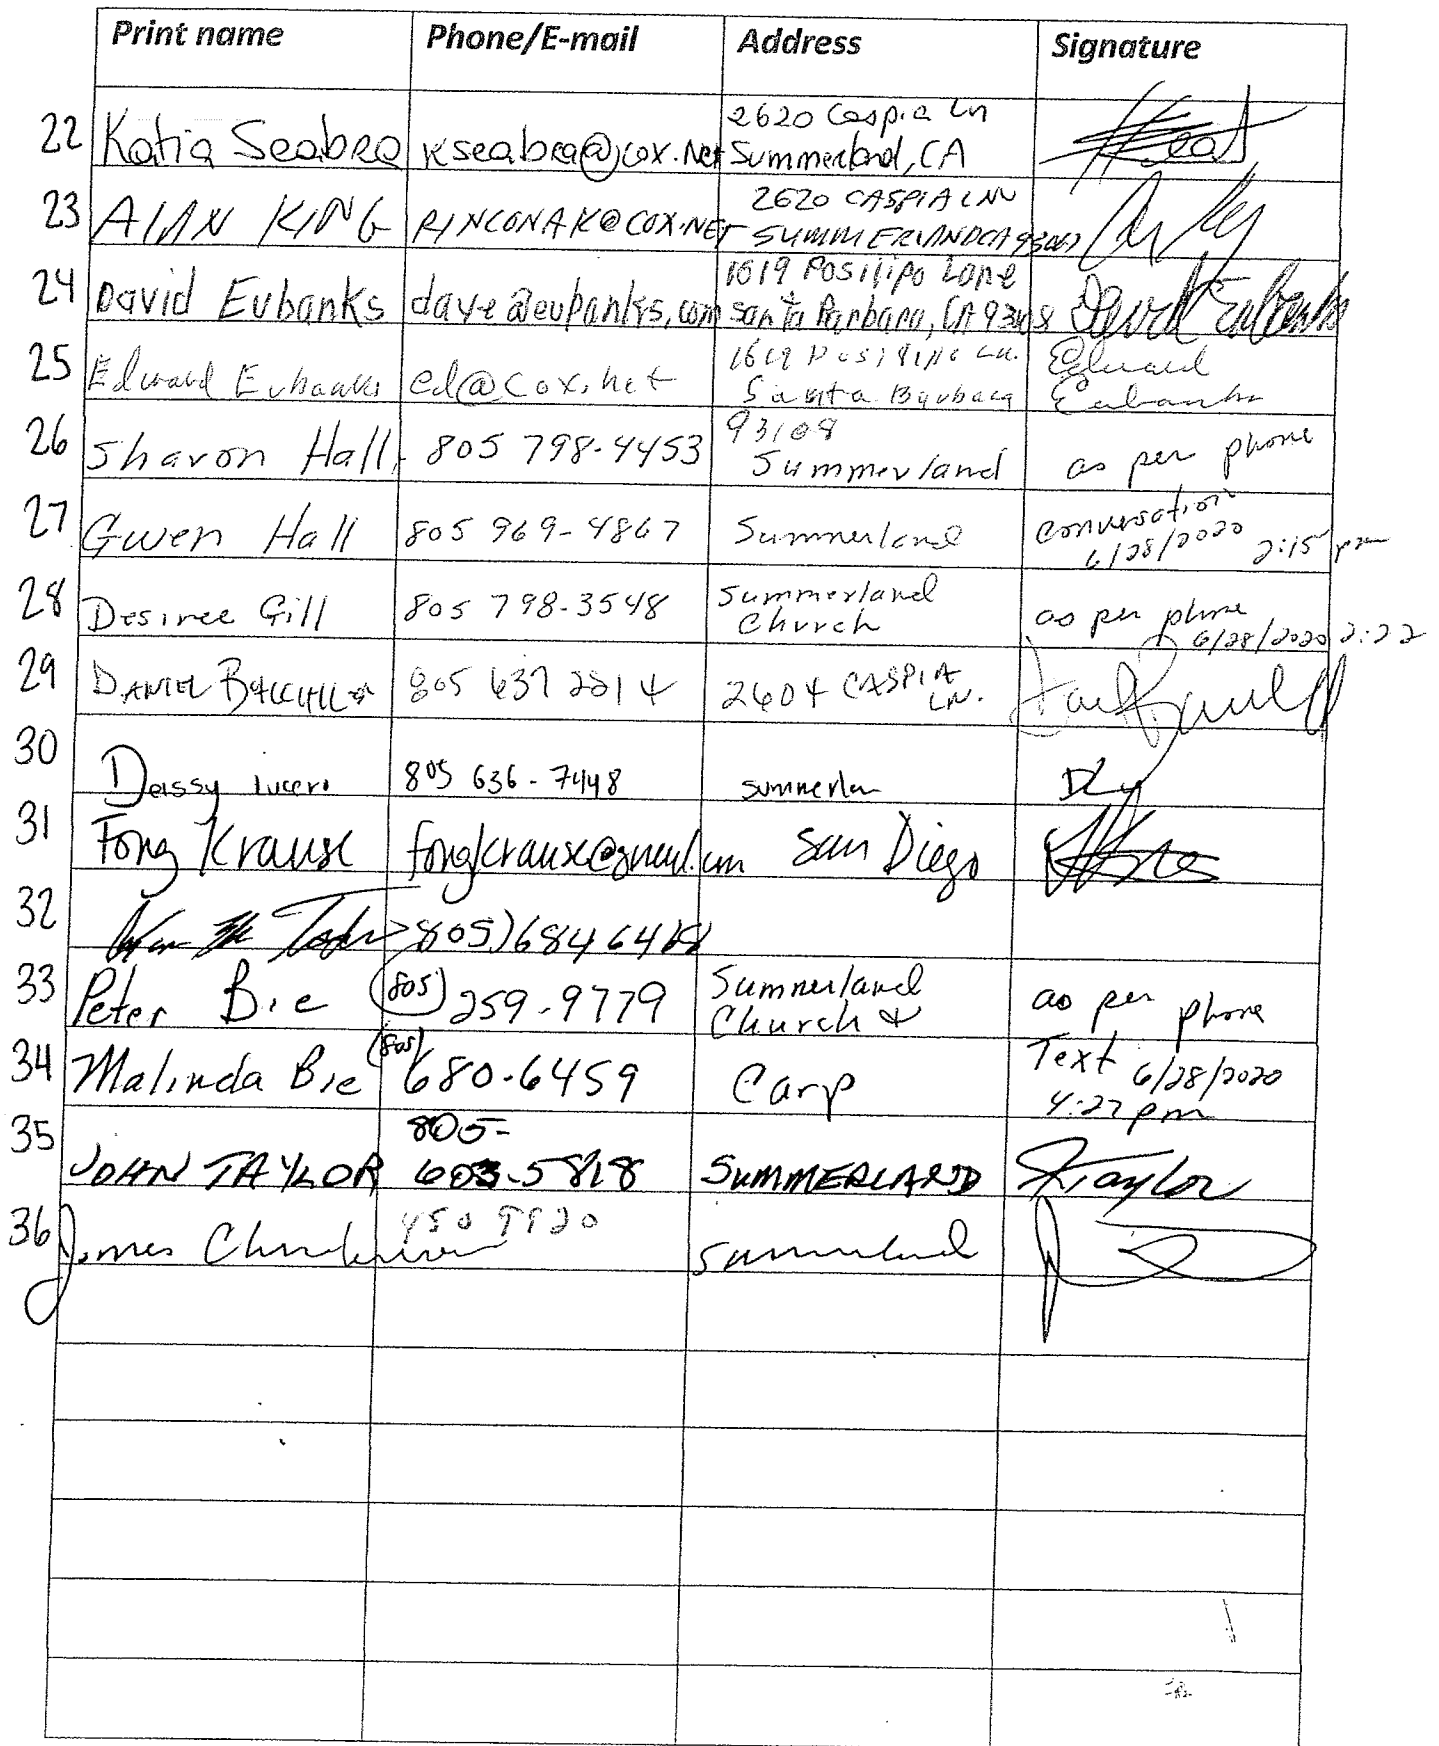 Print name Phone/E-mail Address Signature
22 Katia Seabra kseabra@cox.net 2620 Caspia Ln
Summerland, CA
23 ALAN KING RINCONAK@COX.NET 2620 CASPIA LN
SUMMERLAND CA 93067
24 David Eubanks dave@eubanks.com 1619 Posilipo Lane
Santa Barbara, CA 93108 David Eubanks
25 Edward Eubanks ed@cox.net 1619 Posilipo Ln.
Santa Barbara
93108
Edward
Eubanks
26 Sharon Hall 805 798-4453 Summerland as per phone
27 Gwen Hall 805 969-4867 Summerland conversation
6/28/2020 2:15 pm
28 Desiree Gill 805 798-3548 Summerland
Church
as per phone
6/28/2020 2:22
29 DANIEL 805 637 2814 2604 CASPIA
LN.
30 Deissy lucero 805 636-7448 summerlan
31 Fong Krause fongkrause@gmail.com San Diego
32 805)684 64
33 Peter Bie (805) 259-9779 Summerland
Church &
as per phone
34 Malinda Bie (805) 680-6459 Carp Text 6/28/2020
4:27 pm
35 JOHN TAYLOR 805-
603-5818 SUMMERLAND JTaylor
36 James 450 9920 Summerland